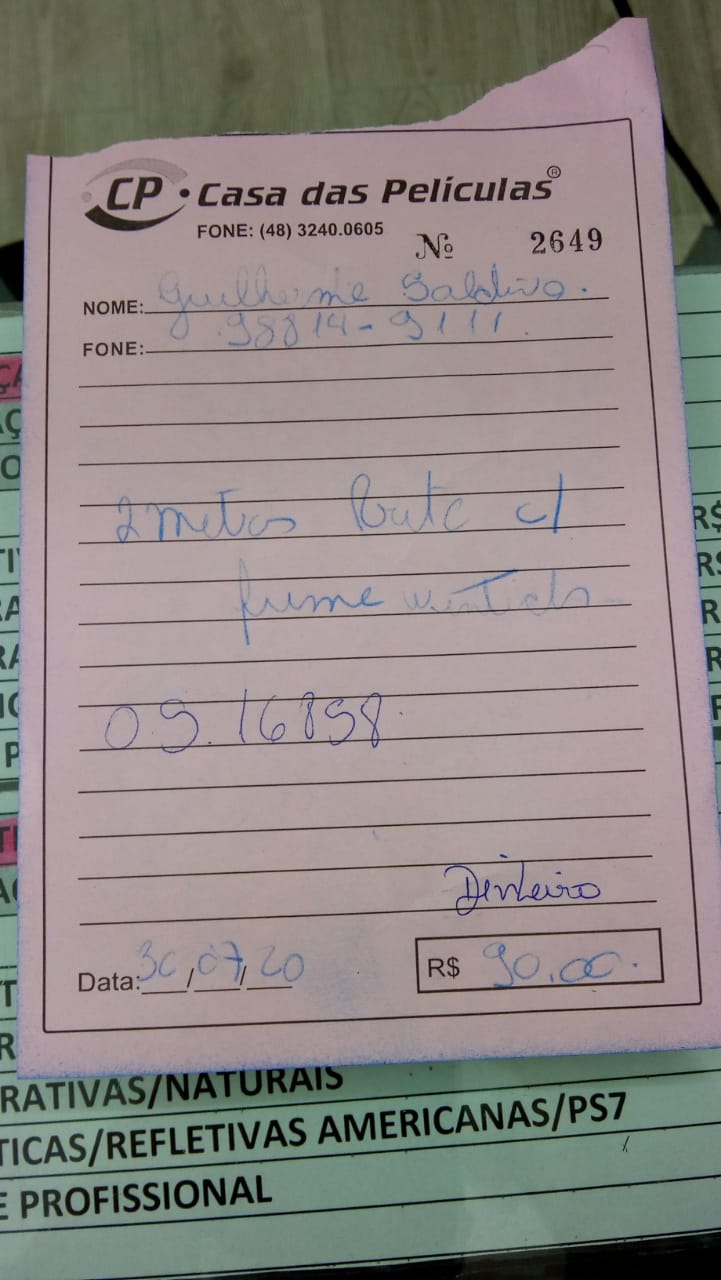 CP • Casa das Películas®
FONE: (48) 3240.0605
Nº 2649
NOME: Guilherme Saldivo.
FONE: 98814-9111.
2 metros c/
fume
09.16898
Dinheiro
Data: 30/07/20
R$ 90,00.
RATIVAS/NATURAIS
TICAS/REFLETIVAS AMERICANAS/PS7
E PROFISSIONAL